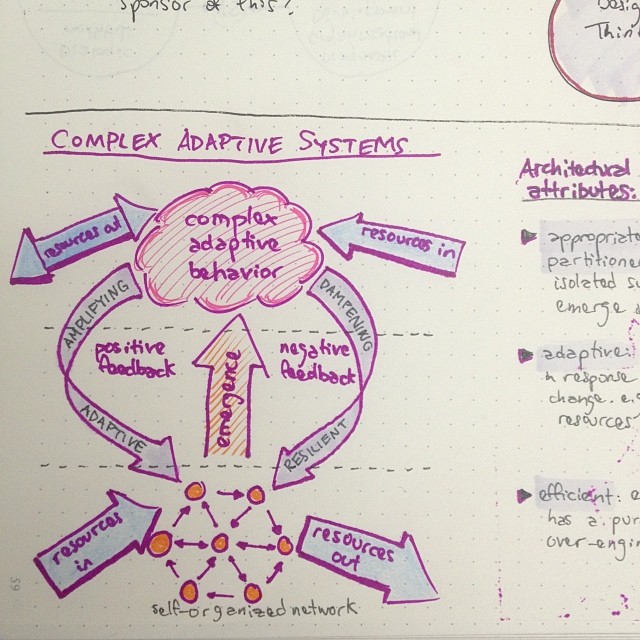 sponsor of this?
Think
COMPLEX ADAPTIVE SYSTEMS
resources out
complex
adaptive
behavior
resources in
AMPLIFYING
DAMPENING
positive
feedback
negative
feedback
emergence
ADAPTIVE
RESILIENT
resources
in
resources
out
self-organized network
Architectural
attributes:
appropriate
partitione
isolated su
emerge
adaptive:
in response
change. e.g
resources
efficient: e
has a pur
over-engin
39